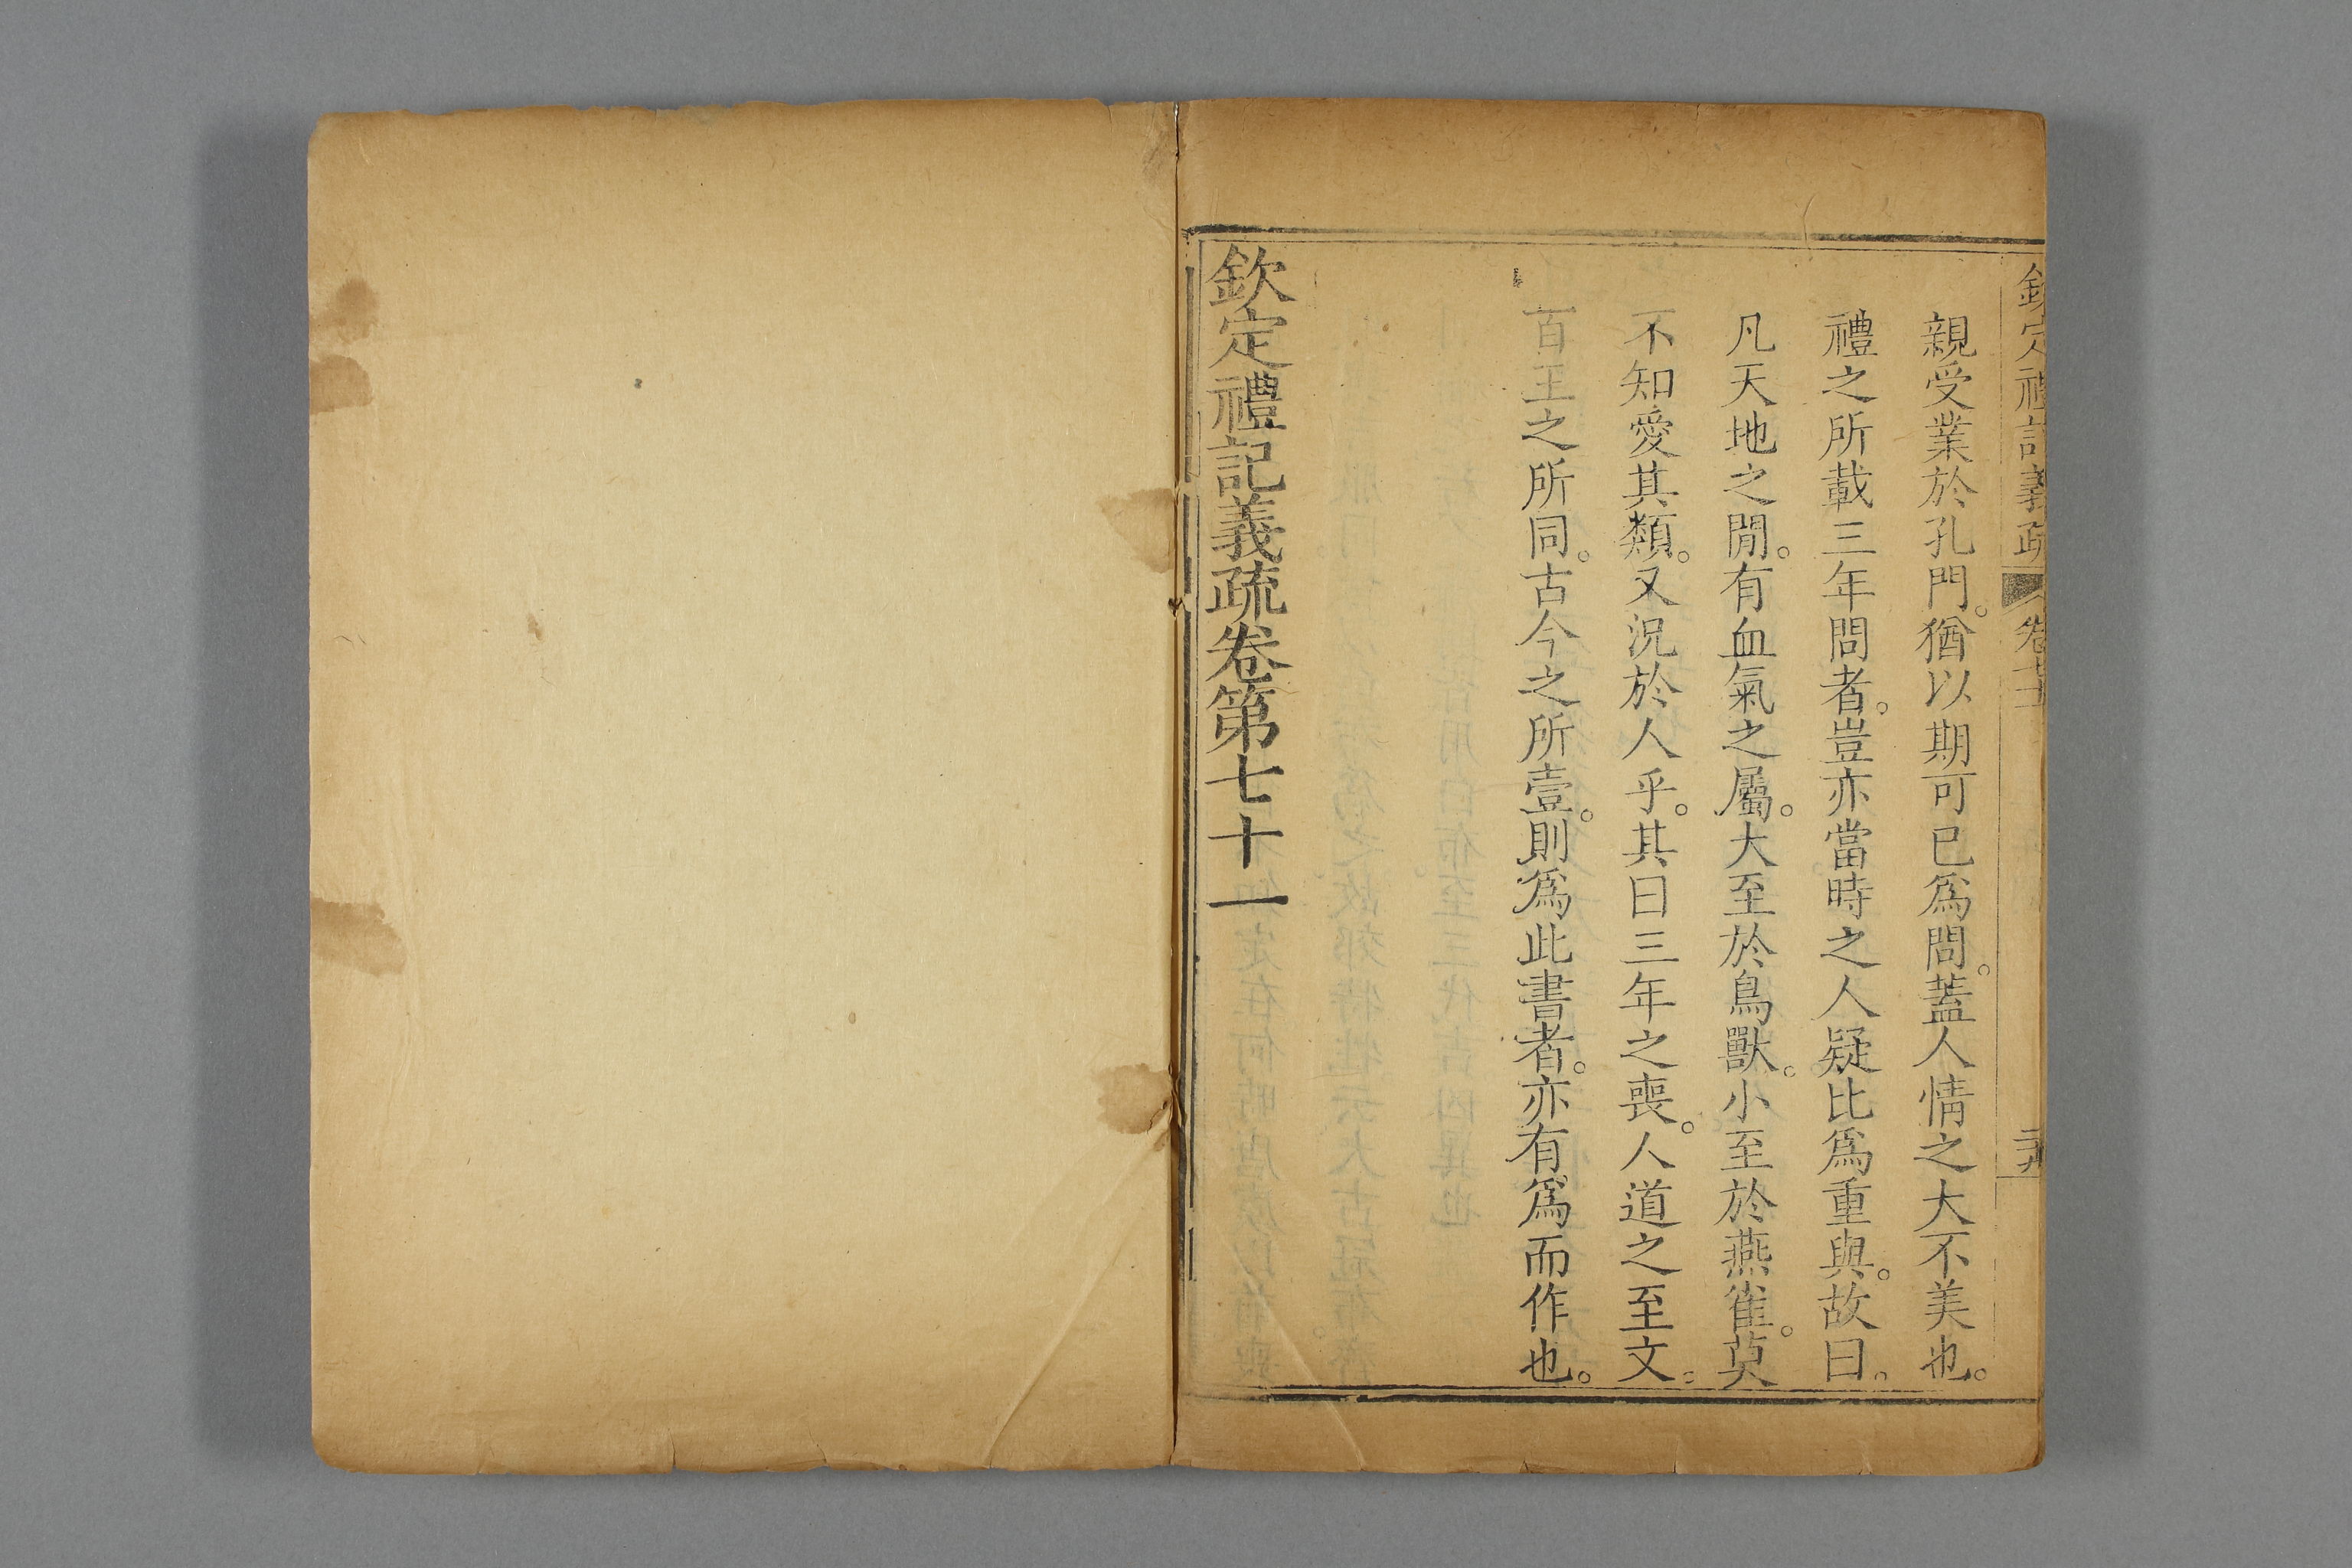 欽定禮記義疏 卷七十一 二十九
親受業於孔門。猶以期可已爲問。蓋人情之大不美也。
禮之所載三年問者。豈亦當時之人疑比爲重與。故曰。
凡天地之閒。有血氣之屬。大至於鳥獸。小至於燕雀。莫
不知愛其類。又況於人乎。其曰三年之喪。人道之至文。
百王之所同。古今之所壹。則爲此書者。亦有爲而作也。
欽定禮記義疏卷第七十一